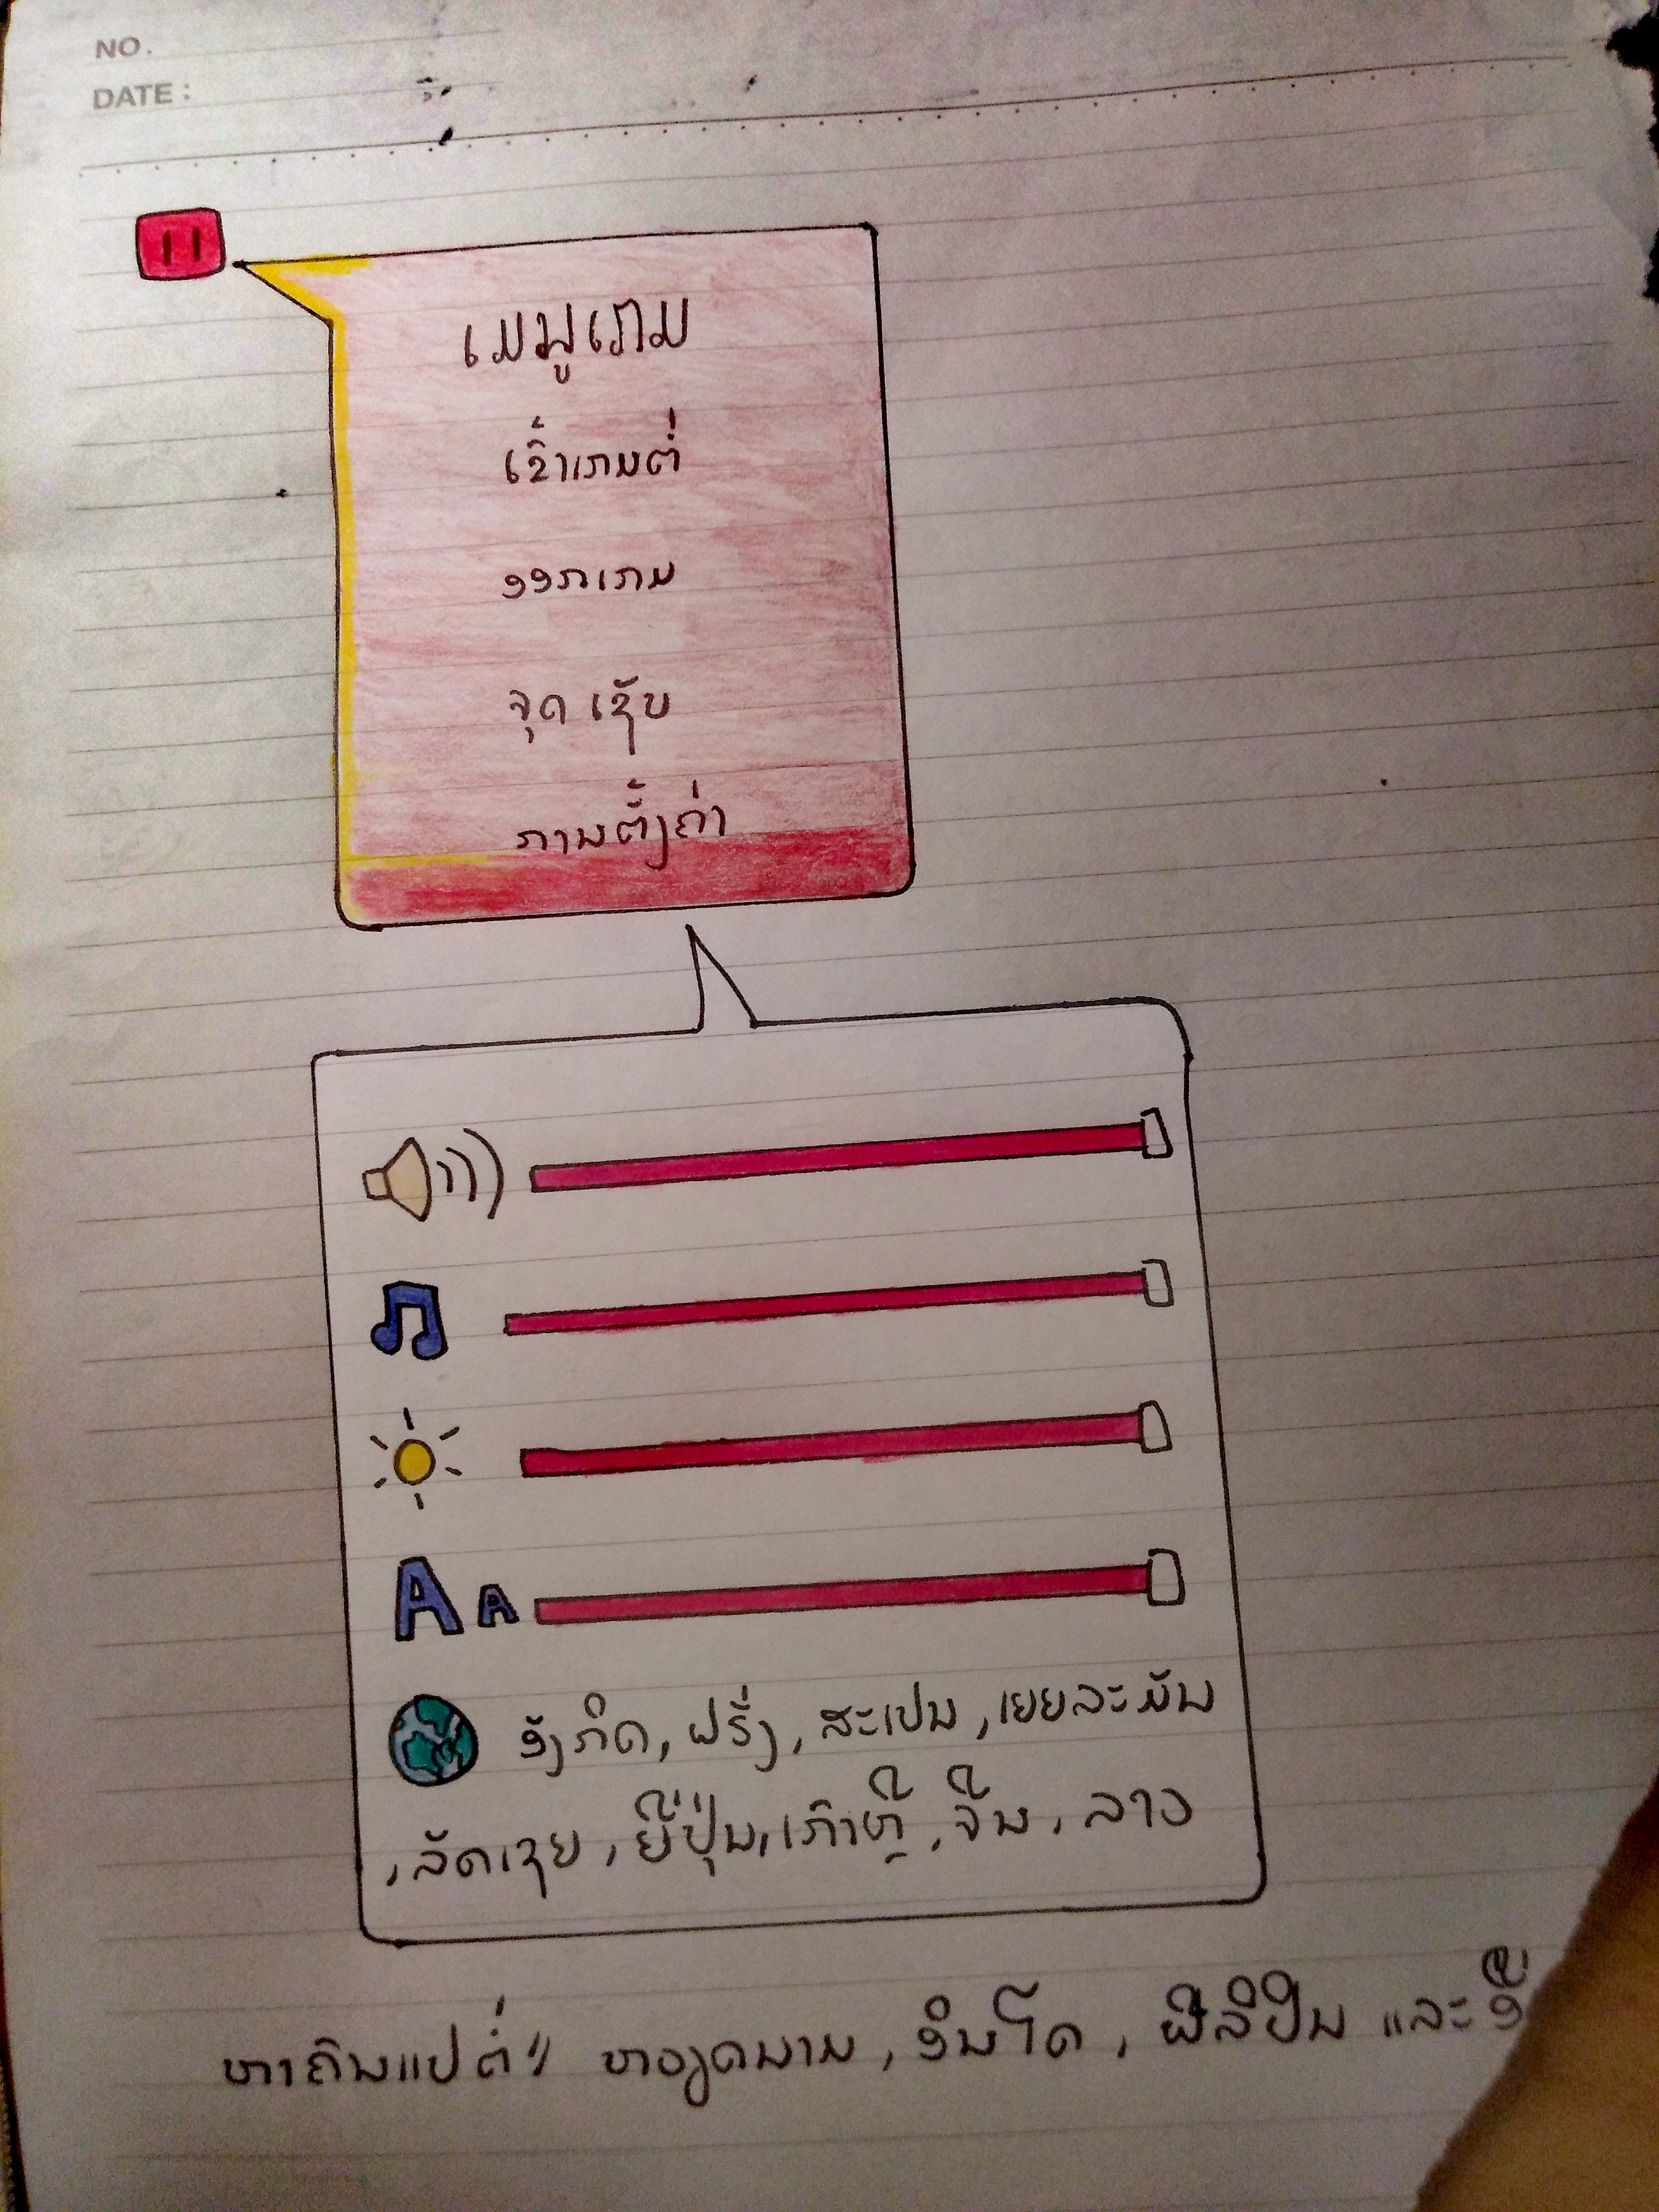 NO.
DATE:
ເມນູເກມ
ເຂົ້າເກມຕໍ່
ອອກເກມ
ຈຸດ ເຊັບ
ການຕັ້ງຄ່າ
A A
ອັງກິດ, ຝຣັ່ງ, ສະເປນ, ເຍຍລະມັນ
, ລັດເຊຍ, ຍີ່ປຸ່ນ, ເກົາຫຼີ, ຈີນ, ລາວ
ຫາຄົນແປຕໍ່ ຫວຽດນາມ, ອິນໂດ, ຟີລິປິນ ແລະ